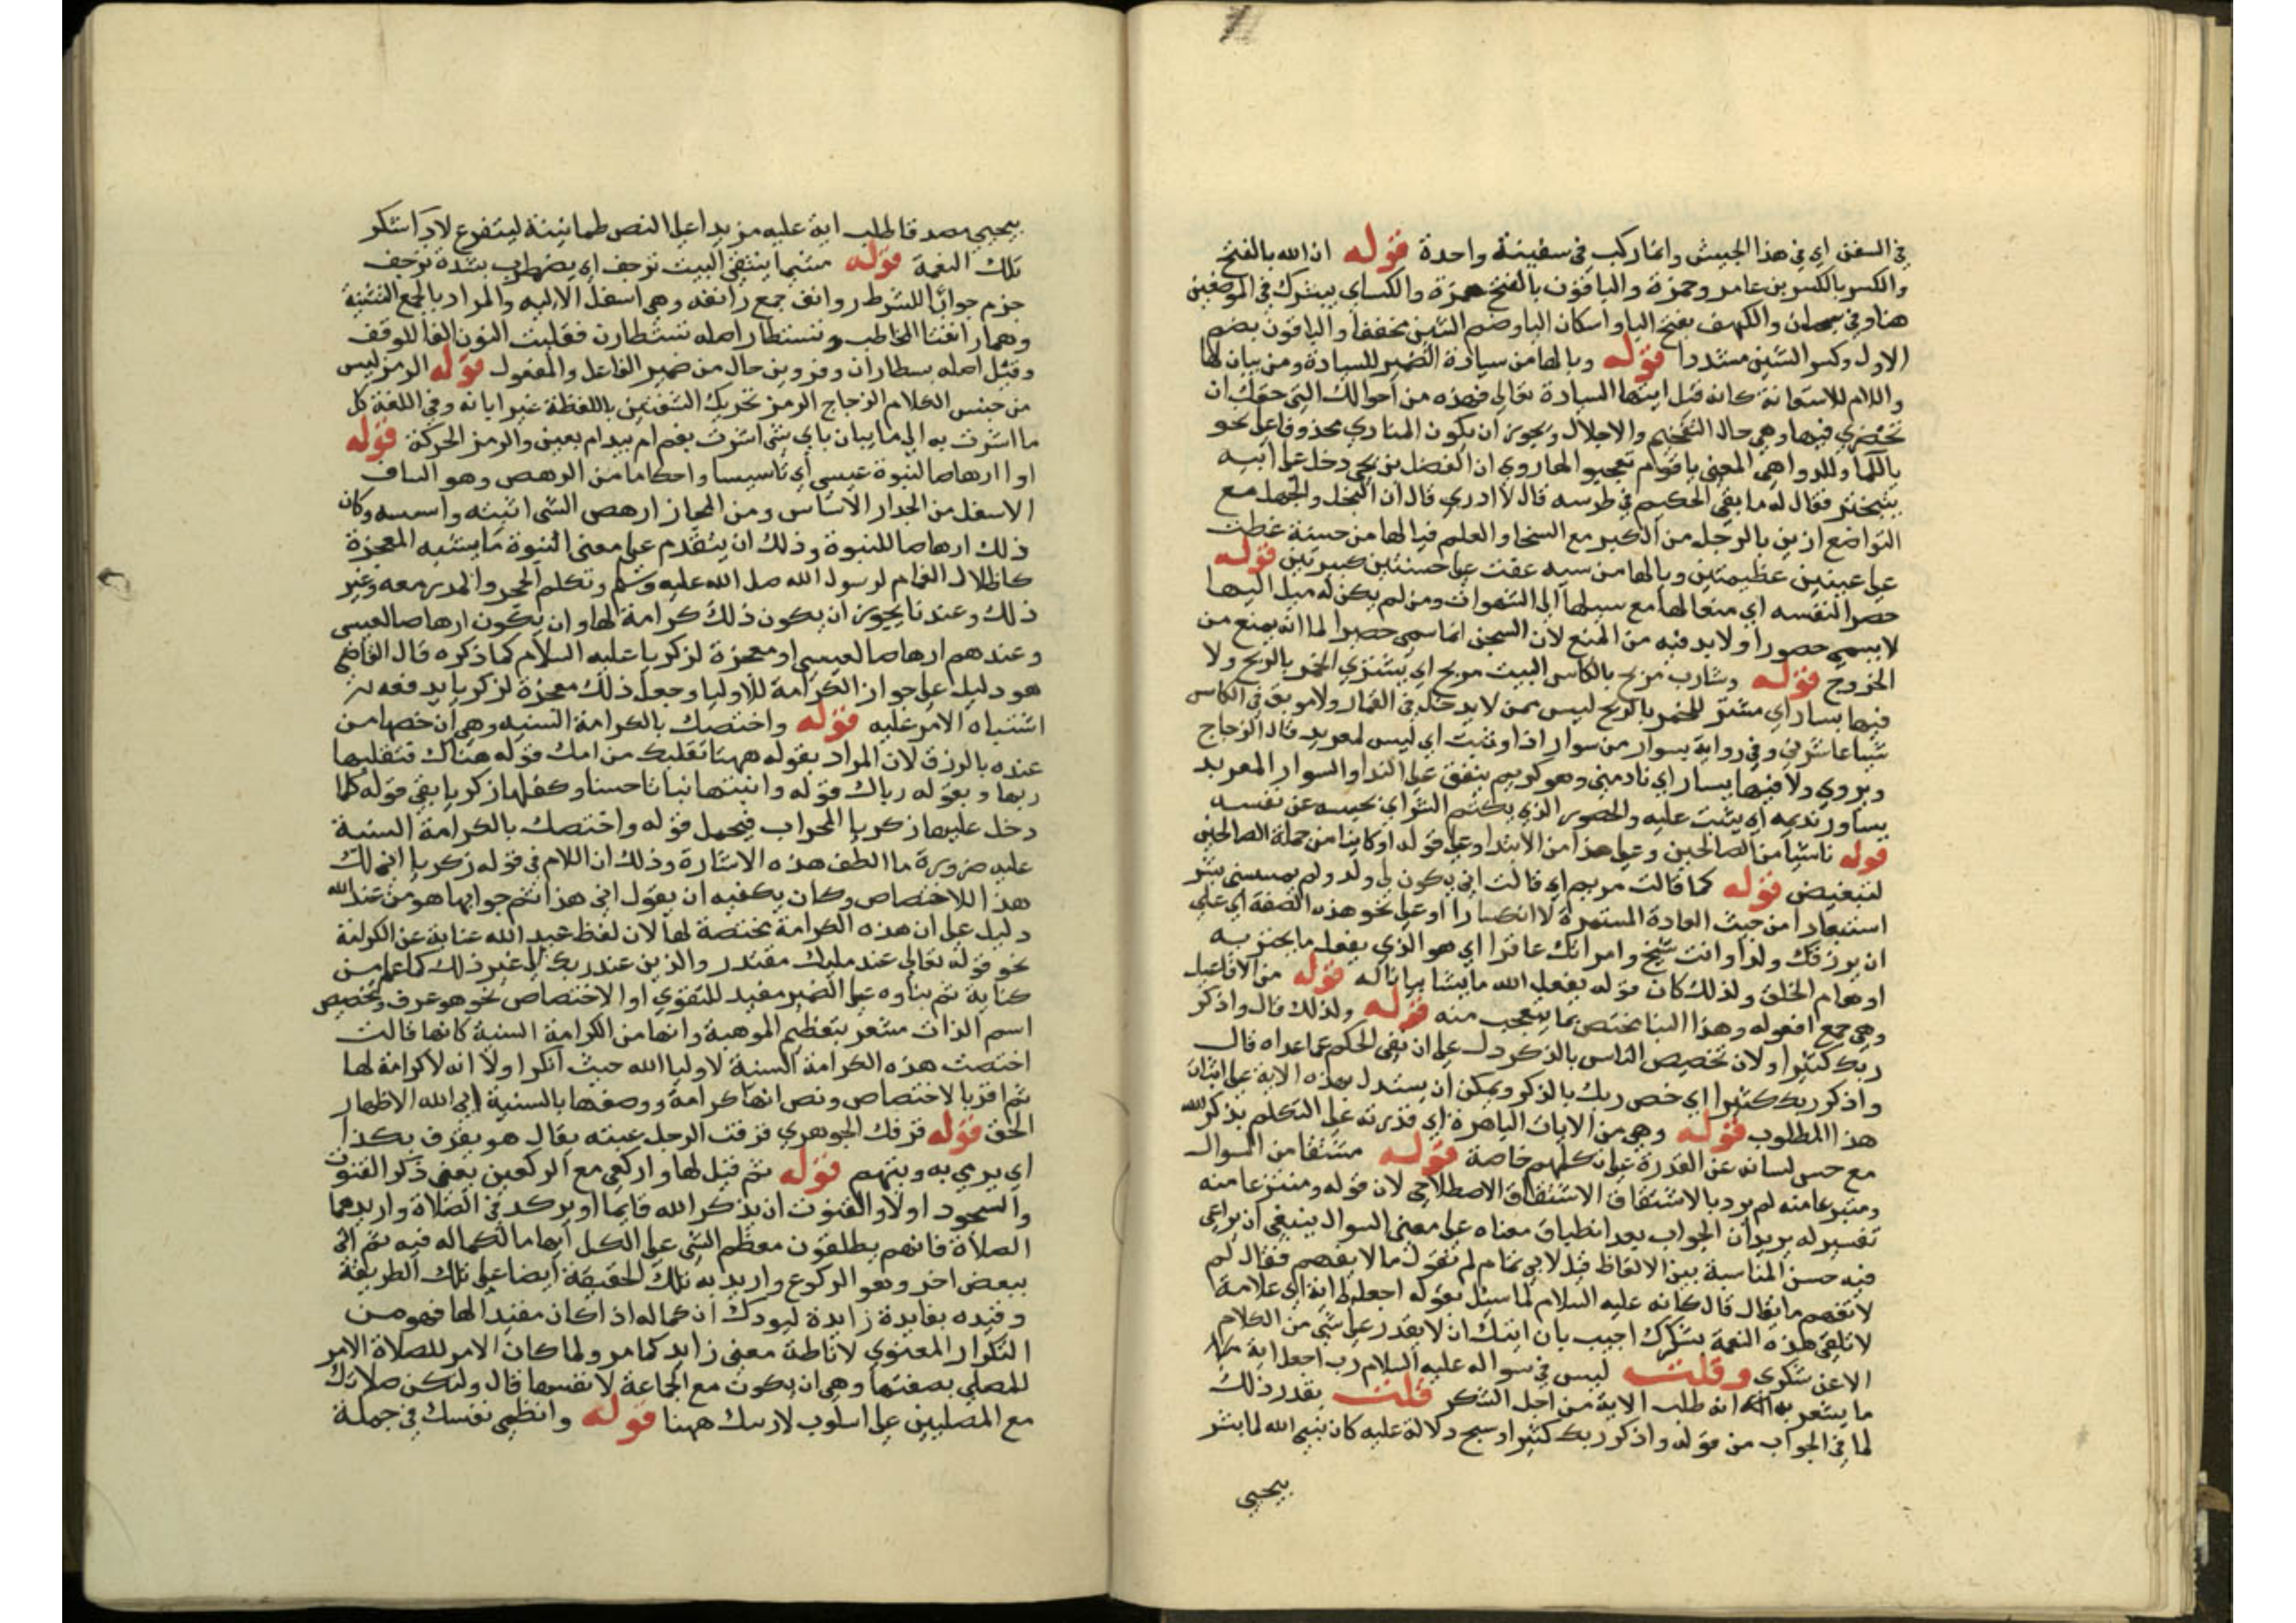 في السفن اي في هذا الجيش وانما ركب في سفينة واحدة قوله ان الله بالفتح
والكسر بالكسر بن عامر وحمزة والباقون بالفتح حمزة والكساي يبشرك في الموضعين
هنا وفي سبحان والكهف بفتح اليا واسكان الباو ضم الشين مخففا والباقون بضم
الاول وكسر الشين مشددا قوله ويا لها من سيادة الضمير للسيادة ومن بيان لها
واللام للاستغاثة كانه قيل ايتها السيادة تعالي فهذه من احوالك التي حقك ان
تحضري فيها وهي حال التفخيم والاجلال ويجوز ان يكون المنادي محذوفا علي نحو
ياللماء وللدواهي المعنى يا قوم تعجبوا لها روي ان الفضل بن يحيى دخل علي ابيه
يتبختر فقال له ما بقي الحكيم في طرسه قال لا ادري قال ان البخل والجهل مع
التواضع ازين بالرجل من الكبر مع السخا والعلم فيا لها من حسنة غطت
علي عيبين عظيمتين ويا لها من سيه عفت علي حسنتين كبيرتين قوله
حصرا لنفسه اي منعا لها مع ميلها الي الشهوات ومن لم يكن له ميل اليها
لا يسمي حصورا ولا بد فيه من المنع لان السجن انما سمي حصيرا لما انه يمنع من
الخروج قوله وشارب مربح بالكاس البيت مربح اي يشتري الخمر بالربح ولا
فيها بسار اي مشتر للخمر بالربح ليس ممن لا يدخل في القمار ولا مو بق في الكاس
شيا عاشر في وفي رواية بسوار من سوار اذا وثبت اي ليس لمعربد قال الزجاج
ويروي ولا فيها بسار اي نادمني وهو كريم ينفق علي الندا والسوار المعربد
يساور نديمه اي يثب عليه والحصور الذي يكتم السر اي يحبسه عن نفسه
قوله ناشيا من الصالحين وعلي هذا من الابتدا وعلي قوله او كاينا من جملة الصالحين
لتبعيض قوله كما قالت مريم اي قالت اني يكون لي ولد ولم يمسسني بشر
استبعادا من حيث العادة المستمرة لا انكسارا او علي نحو هذه الصفة اي علي
ان يرزقك ولدا وانت شيخ وامراتك عاقرا اي هو الذي يفعل ما يحير به
اوهام الخلق ولذلك كان قوله يفعل الله ما يشا بيانا له قوله من الافاعيل
وهي جمع افعوله وهذا البنا يختص بما يتعجب منه قوله ولذلك قال واذكر
ربك كثيرا ولان تخصيص الناس بالذكر دل علي ان نفي الحكم عما عداه قال
واذكر ربك كثيرا اي خص ربك بالذكر ويمكن ان يستدل بهذه الاية علي اثبات
هذا المطلوب قوله وهي من الايات الباهرة اي قدرته علي التكلم بذكر الله
مع حبس لسانه عن القدرة علي تكليمهم خاصة قوله مشتقا من السوال
ومنتزعا منه لم يرد بالاشتقاق الاشتقاق الاصطلاحي لان قوله ومنتزعا منه
تفسير له يريد ان الجواب بعد انطباق معناه علي معنى السوال ينبغي ان يراعي
فيه حسن المناسبة بين الالفاظ قيل لابي تمام لم تقول ما لا يفهم فقال لم
لا تفهم ما يقال قال كانه عليه السلام لما سيل بقوله اجعل لي اية اي علامة
لاتلقي هذه النعمة بشكرك اجيب بان ايتك ان لا يقدر علي شي من الكلام
الا عن شكري وقلت ليس في سواله عليه السلام رب اجعل اية
ما يشعر انه طلب الاية من اجل الشكر قلت يقدر ذلك
لما في الجواب من قوله واذكر ربك كثيرا وسبح دلالة عليه كان نبي الله لما بشر
بيحيي
بيحيي مصدقا طلب اية عليه مزيدا علي النص طمانينة ليتفرغ لادا شكر
تلك النعمة قوله متى ما ينتقي البيت ترجف اي يضطرب بشدة ترجف
جزم جوابا للشرط روانف جمع رانفه وهي اسفل الاليه والمراد بالجمع التثنية
وهما رانفتا المخاطب وتستطار اصله تستطارن فقلبت النون الفا للوقف
وقيل اصله يسطاران وفروين حال من ضمير الفاعل والمفعول قوله الرمز ليس
من جنس الكلام الزجاج الرمز تحريك الشفتين باللفظة غير ابانه وفي اللغة كل
ما اشرت به الي ما يبان باي شي اشرت بفم ام بيد ام بعين والرمز الحركة قوله
او ارهاصا لنبوة عيسي اي تاسيسا واحكاما من الرهص وهو الساف
الاسفل من الجدار الاساس ومن المجاز ارهص الشي اثبته واسسه وكان
ذلك ارهاصا للنبوة وذلك ان يتقدم علي معنى النبوة ما يشبه المعجزة
كاظلال الغمام لرسول الله صل الله عليه وسلم وتكلم الحجر والمدر معه وغير
ذلك وعندنا يجوز ان يكون ذلك كرامة لها وان يكون ارهاصا لعيسى
وعندهم ارهاصا لعيسي او معجزة لزكريا عليه السلام كما ذكره قال القاضي
هو دليل علي جواز الكرامة للاوليا وجعل ذلك معجزة لزكريا يدفعه
اشتباه الامر عليه قوله واختصك بالكرامة السنيه وهي ان خصها من
عنده بالرزق لان المراد بقوله ههنا تقبلك من امك قوله هناك فتقبلها
ربها وبقوله رباك قوله وانبتها نباتا حسنا وكفلها زكريا بقي قوله كلما
دخل عليها زكريا المحراب فيحمل قوله واختصك بالكرامة السنية
عليه ضرورة ما الطف هذه الاشارة وذلك ان اللام في قوله زكريا اني لك
هذا للاختصاص وكان يكفيه ان يقول اني هذا ثم جوابها هو من عند الله
دليل علي ان هذه الكرامة مختصة لها لان لفظ عبد الله عناية عن الكرامة
نحو قوله تعالي عند مليك مقتدر والذين عند ربك الي غير ذلك كما علم من
كناية ثم بناوه علي الضمير مفيد للتقوي او الاختصاص نحو هو عرف وتخصيص
اسم الذات مشعر بتعظيم الموهبة وانها من الكرامة السنية كانها قالت
اختصت هذه الكرامة السنية لاوليا الله حيث انكر اولا انه لا كرامة لها
ثم اقر بالاختصاص ونص انها كرامة ووصفها بالسنية ابي الله الا اظهار
الحق قوله قرفك الجوهري قرفت الرجل عبته يقال هو يقرف بكذا
اي يرمي به ويتهم قوله ثم قيل لها واركعي مع الراكعين يعني ذكر القنوت
والسجود اولا والقنوت ان يذكر الله قايما او يركد في الصلاة واريد بهما
الصلاة فانهم يطلقون معظم الشي علي الكل ايهاما لكماله فيه ثم اتى
ببعض اخر وهو الركوع واريد به تلك الحقيقة ايضا علي تلك الطريقة
وقيده بفايدة زايدة ليوذن ان كماله اذا كان مقيدا لها فهو من
التكرار المعنوي لاناطة معنى زايد كما مر ولما كان الامر للصلاة الامر
للمصلي بصفتها وهي ان يكون مع الجماعة لا نفسها قال ولتكن صلاتك
مع المصليين علي اسلوب لارينك ههنا قوله وانظمي نفسك في جملة